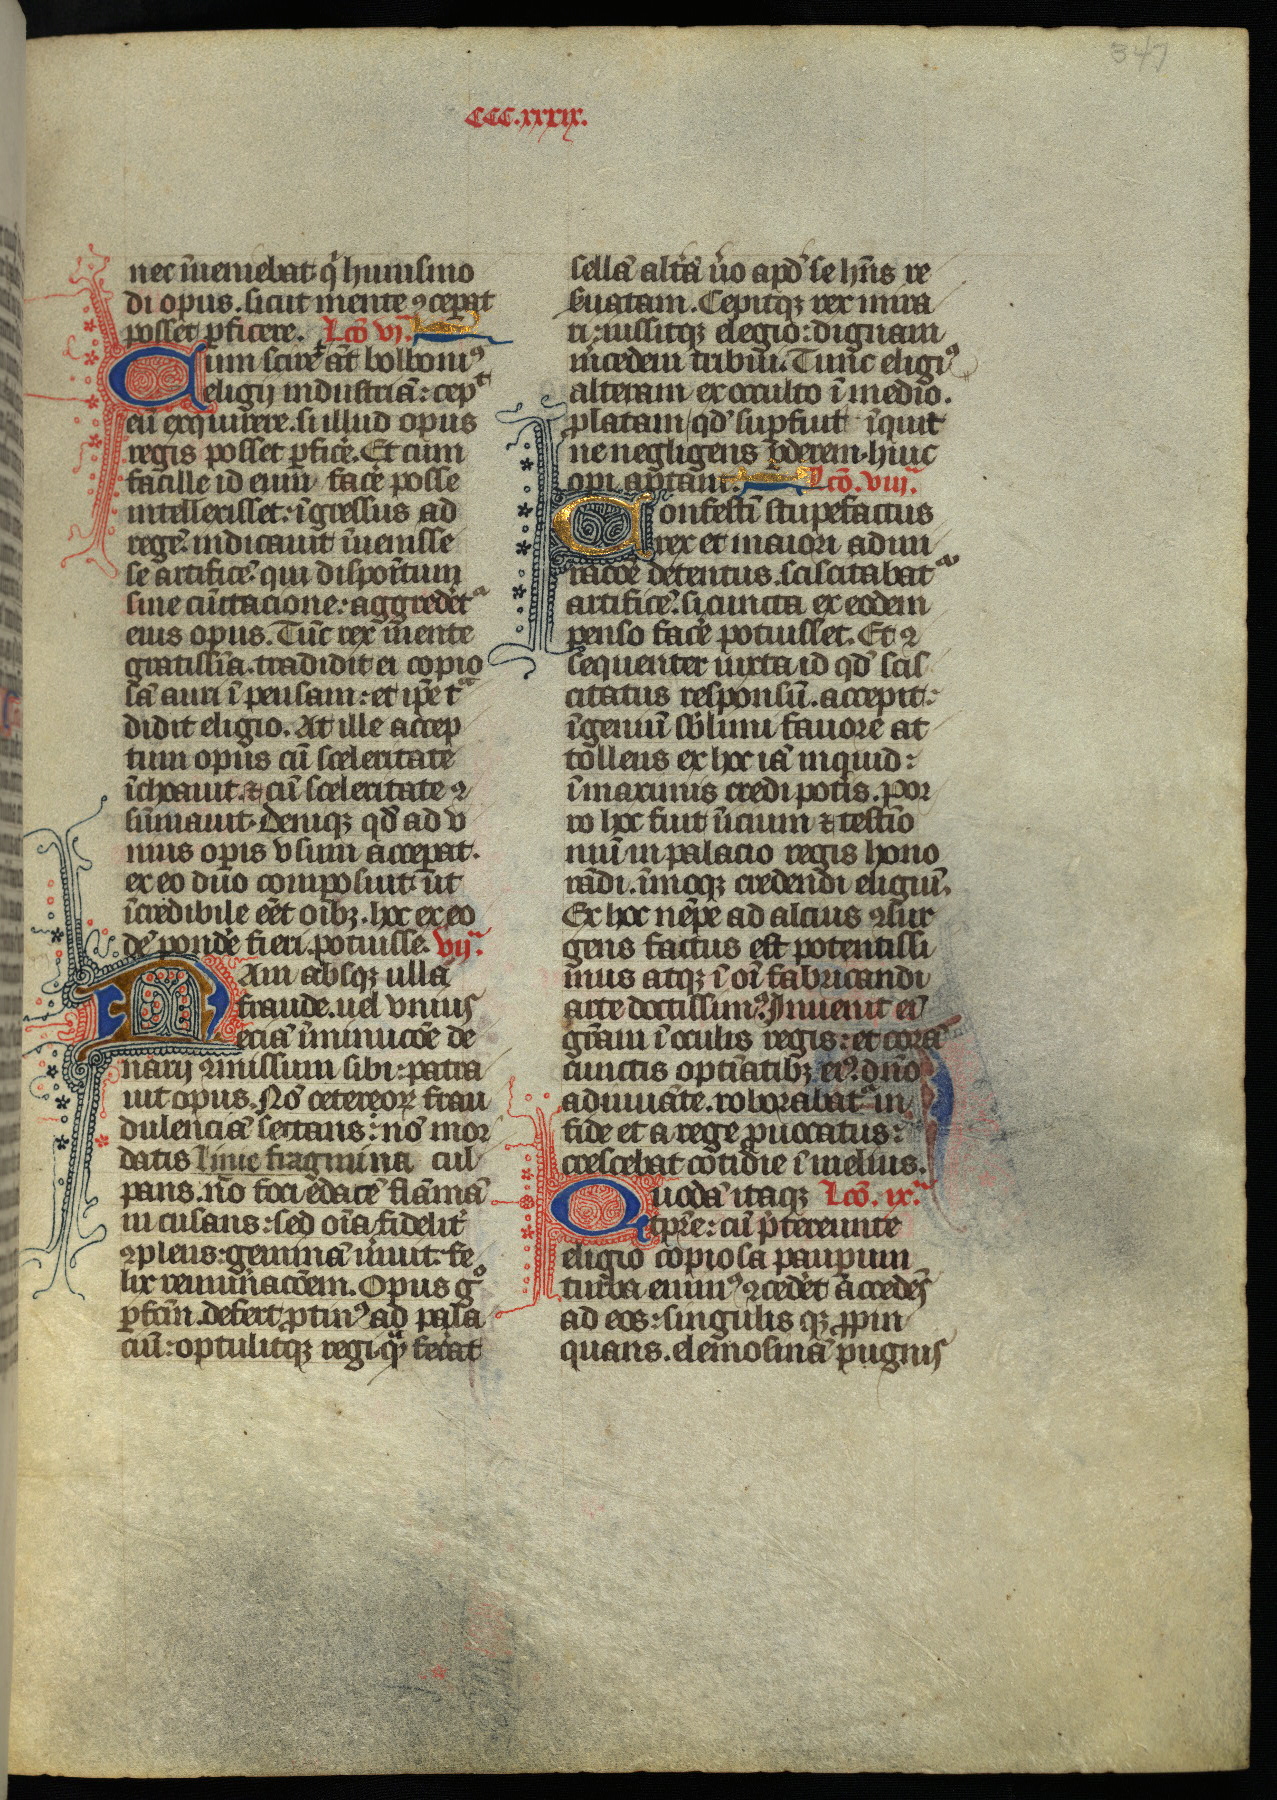 347
CCC.xxxix.
nec īueniebat q̄ huiusmo
di opus. sicut mente ꝯceꝑat
posset ꝑficere. Lcō vj.
Cum sciret̄ aūt bobboniꝰ
eligij industriā: cepᵗ
eū exquirere. si illud opus
regis posset ꝑficē. Et cum
facille id eum facē posse
intellexisset: īgressus ad
regē. indicauit īuenisse
se artificē qui dispoītum
sine cūctacione: aggredēt
eius opus. Tūc rex mente
gratissīa. tradidit ei copio
sā auri īpensam: et ip̄e tᵃ
didit eligio. At ille accep
tum opus cū sceleritate
īchoauit. ⁊ cū sceleritate ꝯ
sūmauit. Deniqꝫ qd̄ ad v
nius opis vsum acceꝑat.
ex eo duo composuit: ut
īcredibile eēt oībꝫ. hoc ex eo
dē pondē fieri potuisse. vijᵃ.
Nam absqꝫ ulla
fraude. uel vnius
eciā īminucōe de
narij ꝯmissum sibi: patra
uit opus. Nō cetereoꝝ frau
dulenciā sectans: nō mor
datis lime fragmina cul
pans. nō foci edacē flāmā
in cusans: sed oīa fidelit̄
ꝯplens: geminā īuit: fe
lix remun̄acōem. Opus gᵒ
ꝑfcm̄. defert ꝓtinꝰ ad pala
ciū: optulitqꝫ regi qᵃ̄ ferat
sellā alt̄a ūo apd̄ se hn̄s re
suatam. Cepitqꝫ rex mira
ri: iussitqꝫ elegio: dignam
mcedem tribui. Tunc eligiꝰ
alteram ex occulto ī medio.
ꝓlatam qd̄ suꝑfuit īquit
ne negligens ꝑderem. hinc
opi aptaui. Lcō. viijᵃ.
Confestī stupefactus
rex et maiori admi
racōe detentus. sciscitabatᵘ
artificē. si cuncta ex eodem
penso facē potuisset. Et ꝯ
sequenter iuxta id qd̄ scis
citatus responsū. accepit:
īgeniū sb̄limi fauore at
tollens ex hoc iā inquid:
ī maximis credi potis. Por
ro hoc fuit īicium ⁊ testīo
niū in palacio regis hono
rādi. īmoqꝫ credendi eligiū.
Ex hoc nēpe ad alcius ꝯsur
gens factus est potentissi
mus atqꝫ ī oī fabricandi
arte doctissimꝰ. Inuenit eī
grāam ī oculis regis: et corā
cunctis optīatibꝫ eiꝰ. dn̄o
adiuuāte. roborabatᵘ in
fide et a rege ꝓuocatus:
crescebat cōtidie ī melius.
Quodā itaqꝫ Lcō. ixᵃ.
tpr̄e: cū p̄tereunte
eligio copiosa pauꝑum
turba eminꝰ ꝯcedēt accedēs
ad eos: singulis qꝫ ꝓpin
quans. elemosinā pugnis